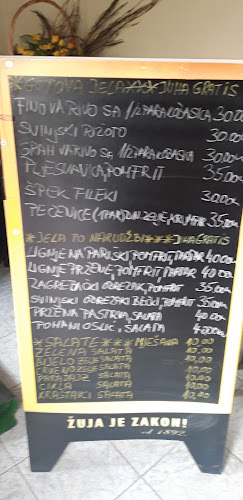 *GOTOVA JELA*** JUHA GRATIS
FINO VARIVO SA 1/2 PARA KOBASICA 30.00
SVINJSKI RIŽOTO 30.00
GRAH VARIVO SA 1/2 PARA KOBASICA 30.00
PLJESKAVICA, POMFRIT 35.00
ŠPEK FILEKI 30.00
PEČENICE (1 PAR) DIN. ZELJE, KRUMPIR 35.00
*JELA PO NARUDŽBI*** JUHA GRATIS
LIGNJE NA PARIŠKI, POMFRIT, TATAR 40.00
LIGNJE PRŽENE, POMFRIT, TATAR 40.00
ZAGREBAČKI ODREZAK, POMFRIT 35.00
SVINJSKI ODREZAK BEČKI, POMFRIT 35.00
PRŽENA PASTRVA, SALATA 40.00
POHANI OSLIĆ, SALATA 40.00
*SALATE*** MJEŠANA 10,00
ZELENA SALATA 10,00
BIJELO ZELJE SALATA 10,00
CRVENO ZELJE SALATA 10,00
PARADAJZ SALATA 10,00
CIKLA SALATA 10,00
KRASTAVCI SALATA 10,00
ŽUJA JE ZAKON!
od 1892.